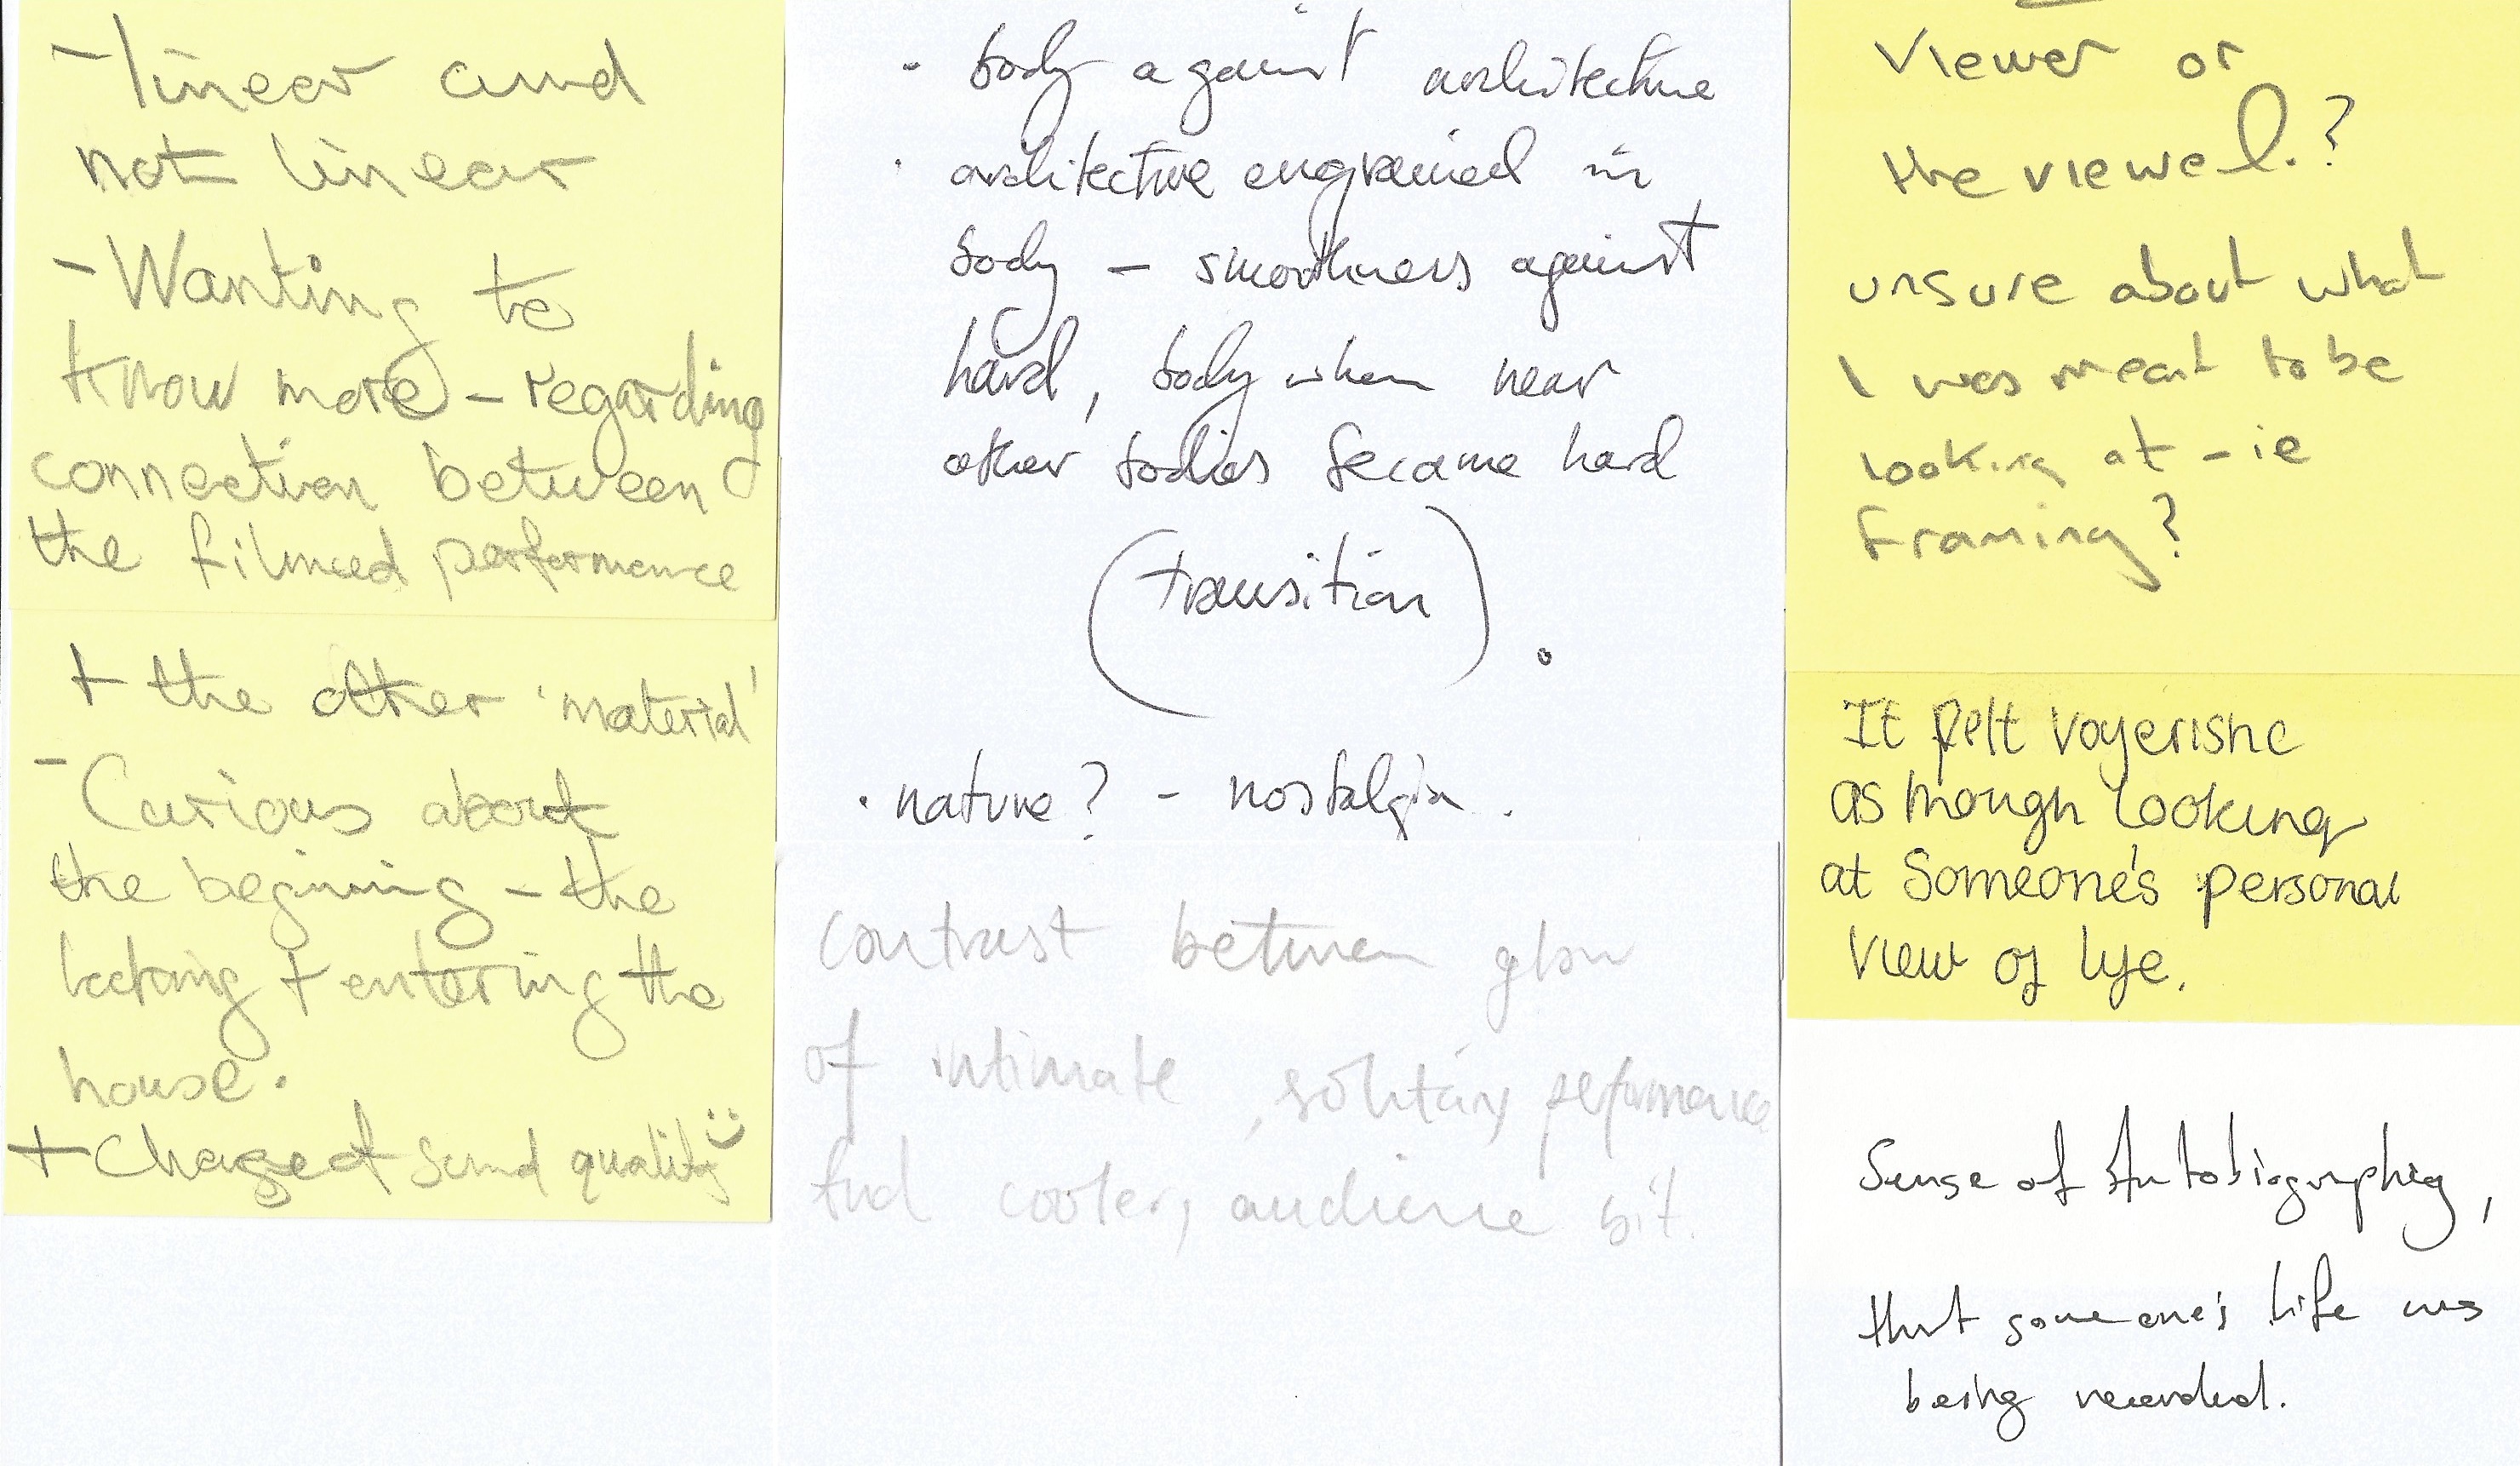 - linear and
not linear
- Wanting to
know more - regarding
connection between
the filmed performance
+ the other 'material'
- Curious about
the beginning - the
+ entering the
house.
+ Change of sound quality
• body against architecture
• architective engrained in
body - smoothness against
hard, body when near
other bodies became hard
(transition).
• nature? - nostalgia.
contrast between glow
of intimate, solitary performance
and cooler, audience bit.
Viewer or
the viewed.?
unsure about what
I was meant to be
looking at - ie
framing?
It felt voyeristic
as though looking
at someone's personal
view of life.
Sense of Autobiography,
that someone's life was
being recorded.